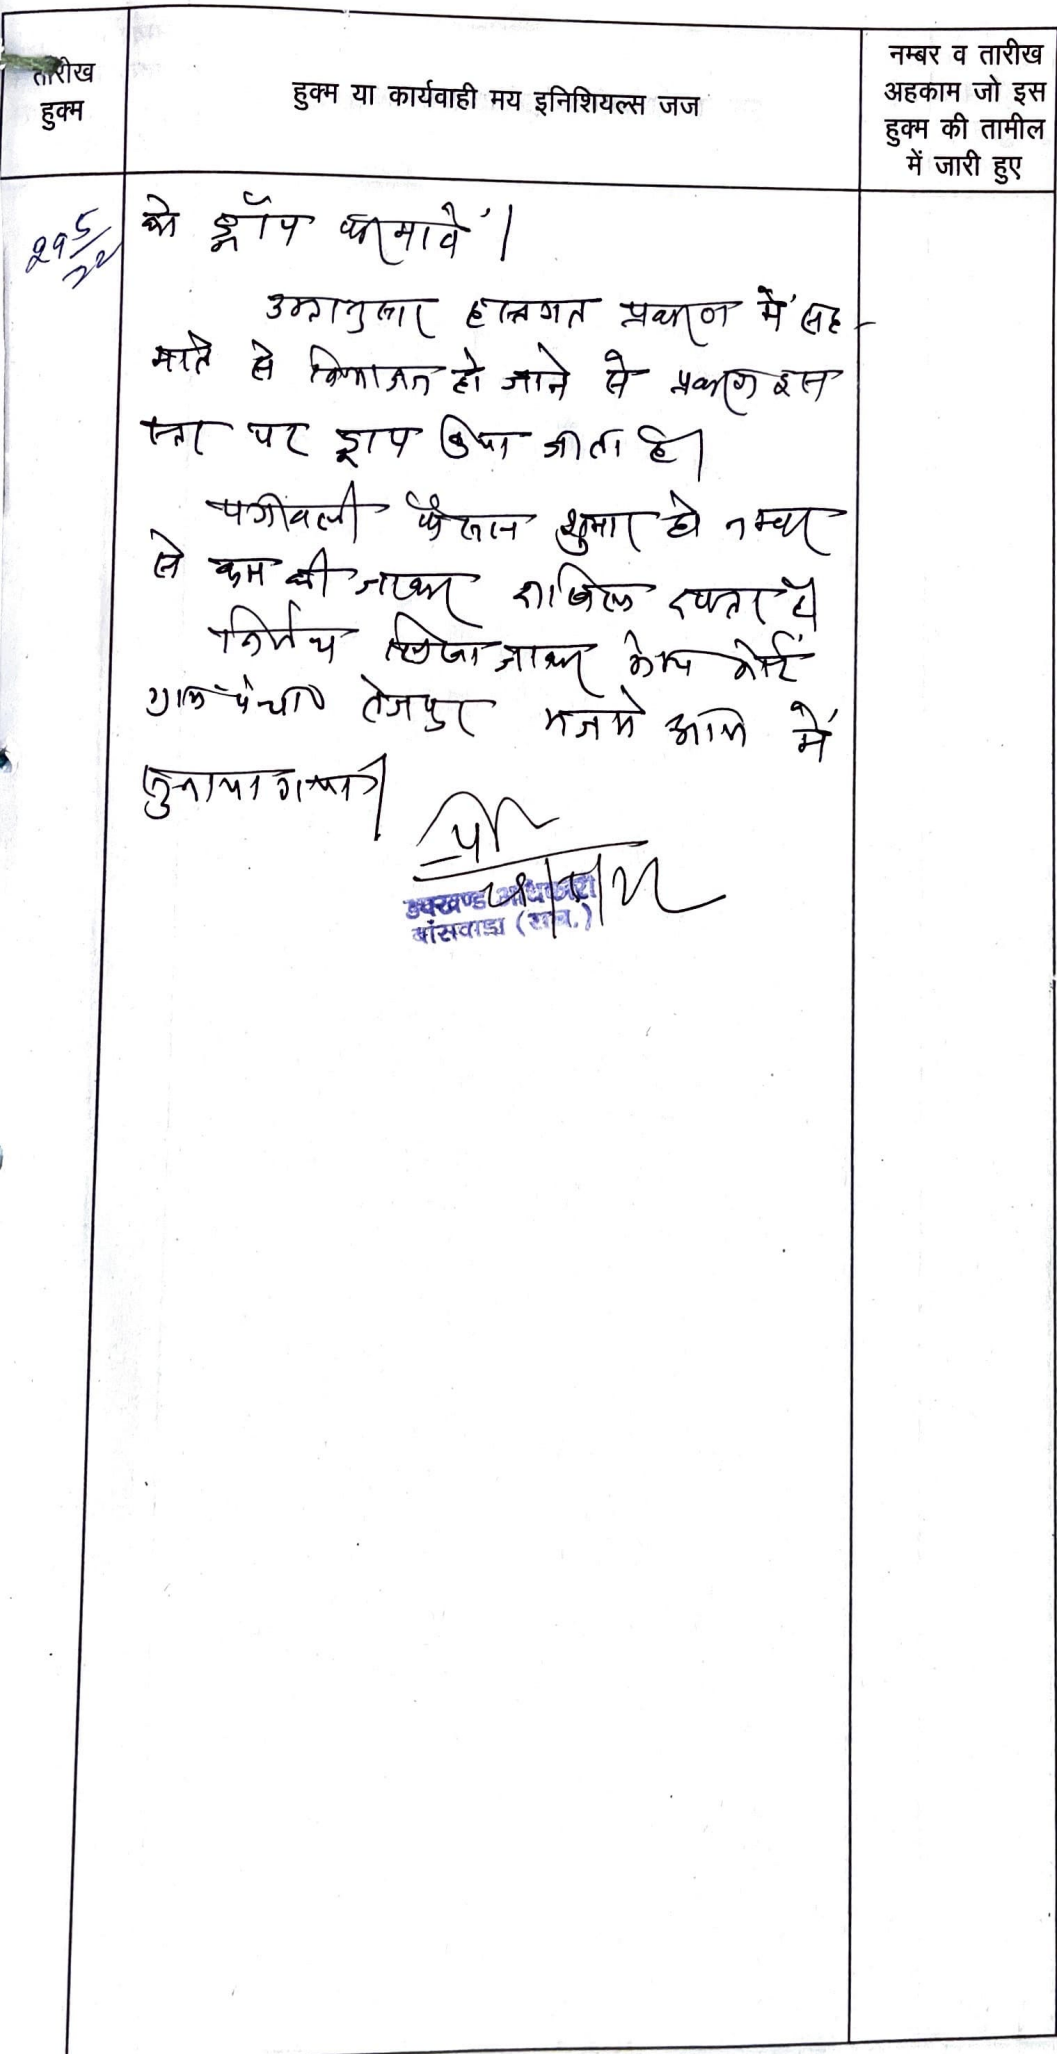 तारीख
हुक्म
हुक्म या कार्यवाही मय इनिशियल्स जज
नम्बर व तारीख
अहकाम जो इस
हुक्म की तामील
में जारी हुए
को ड्रॉप फरमावें।
उक्तानुसार हस्तगत प्रकरण में सह-
मति से विभाजन हो जाने से प्रकरण इस
स्तर पर ड्राप किया जाता है।
पत्रावली फैसल शुमार हो नम्बर
से कम की जाकर दाखिल दफ्तर हो
निर्णय लिखा जाकर केम्प कोर्ट
ग्राम पंचायत तेजपुर मजमे आम में
सुनाया गया।
उपखण्ड अधिकारी
बांसवाड़ा (राज.)